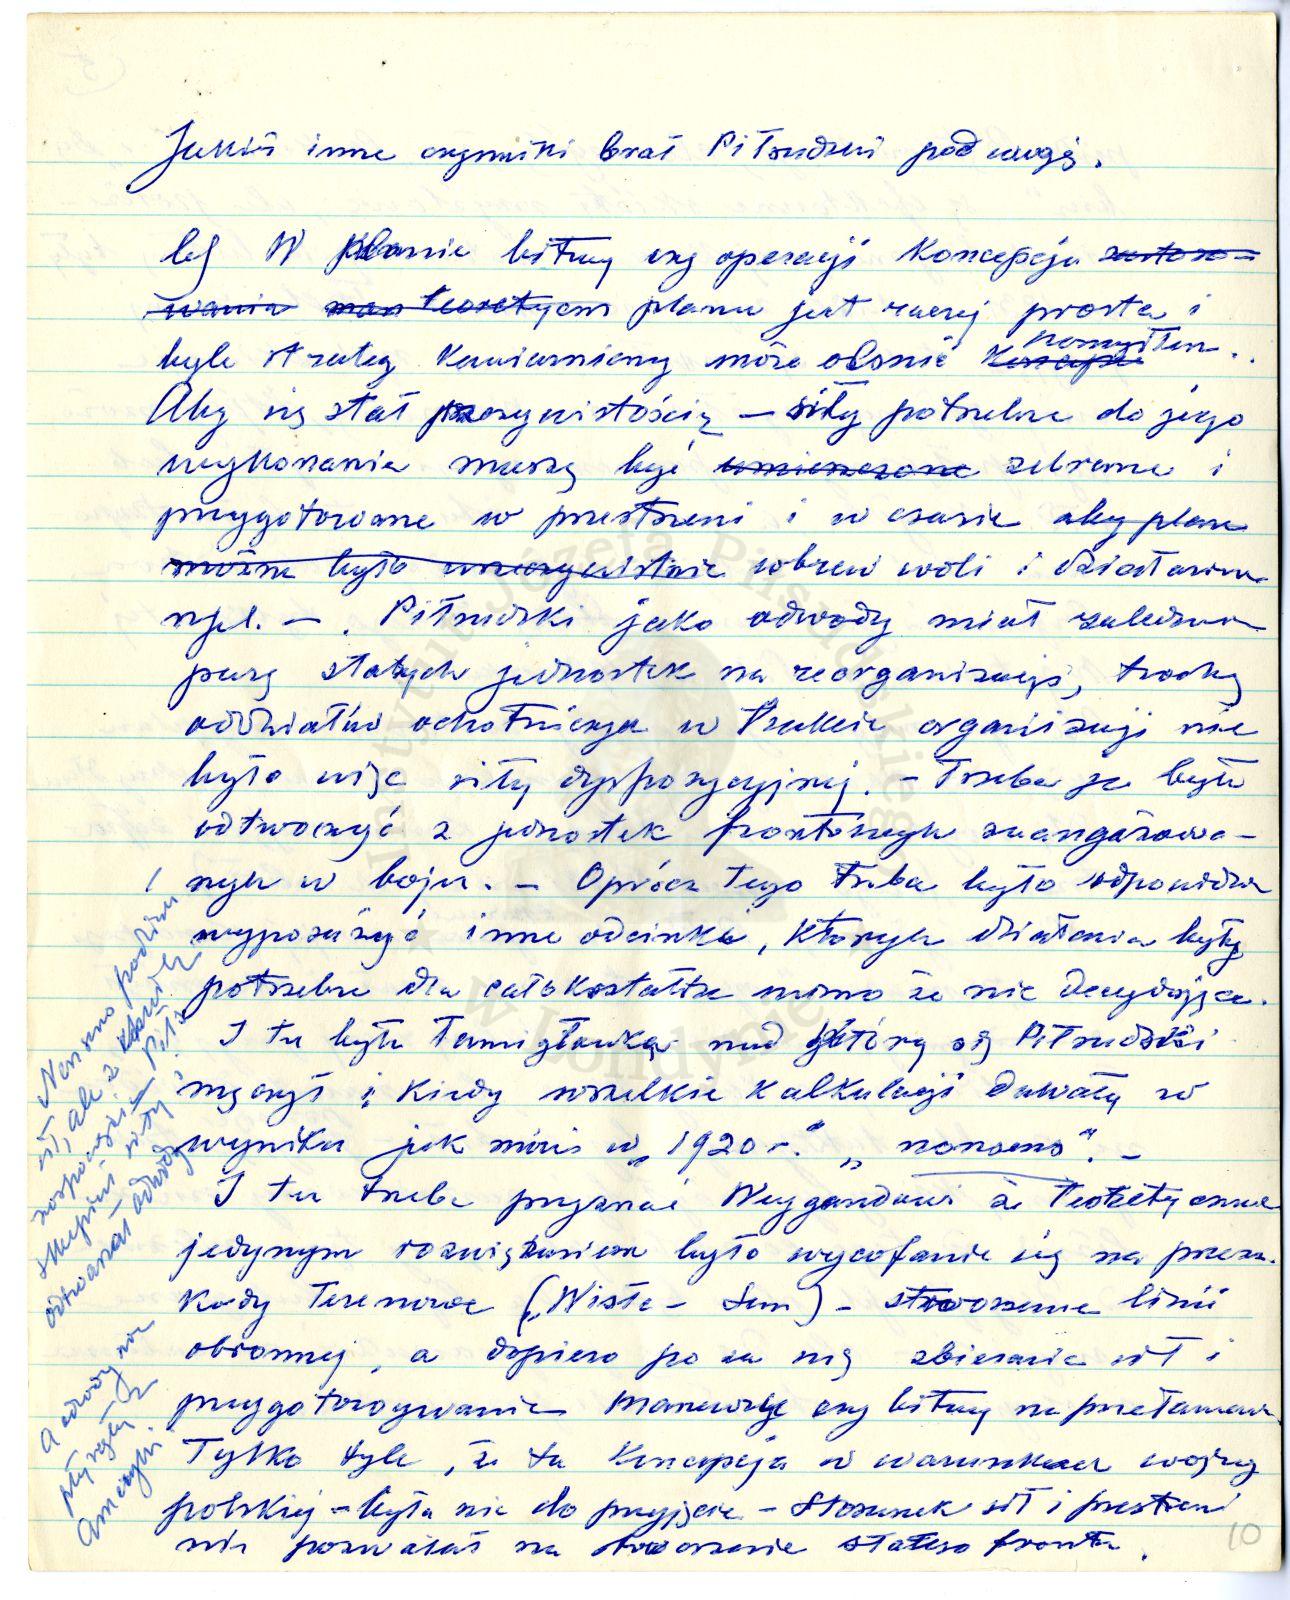 Jakieś inne czynniki brał Piłsudski pod uwagę.
b) W planie bitwy czy operacji koncepcja zastoso-
wania teoretyczn planu jest raczej prosta i
byle strateg kawiarniany może olśnić koncepc pomysłem.
Aby się stał rzeczywistością – siły potrzebne do jego
wykonania muszą być umieszczone zebrane i
przygotowane w przestrzeni i w czasie aby plan
można było urzeczywistnić wbrew woli i działaniu
npl. – . Piłsudski jako odwody miał zaledwie
parę stałych jednostek na reorganizacji, trochę
oddziałów ochotniczych w trakcie organizacji nie
było więc siły dyspozycyjnej. – Trzeba ją było
odtworzyć z jednostek frontowych zaangażowa-
nych w boju. – Oprócz tego trzeba było odpowiednio
wyposażyć inne odcinki, których działania były
potrzebne dla całokształtu mimo że nie decydujące.
I tu była łamigłówka nad którą się Piłsudski
męczył i kiedy wszelkie kalkulacji dawały w
wyniku jak mówi w „1920 r." „nonsens". –
I tu trzeba przyznać Weygandowi że teoretycznie
jedynym rozwiązaniem było wycofanie się na przesz-
kody terenowe (Wisła – San) – stworzenie linii
obronnej, a dopiero poza nią zbieranie sił i
przygotowywanie manewru czy bitwy na przełamanie
Tylko tyle, że ta koncepcja w warunkach wojny
polskiej – była nie do przyjęcia – stosunek sił i przestrzeni
nie pozwalał na stworzenie stałego frontu.
Nonsens podziału
sił, ale z
skupieniu siły
odtwarzał odwody
A odwody nie
płynęły z
Ameryki.
10